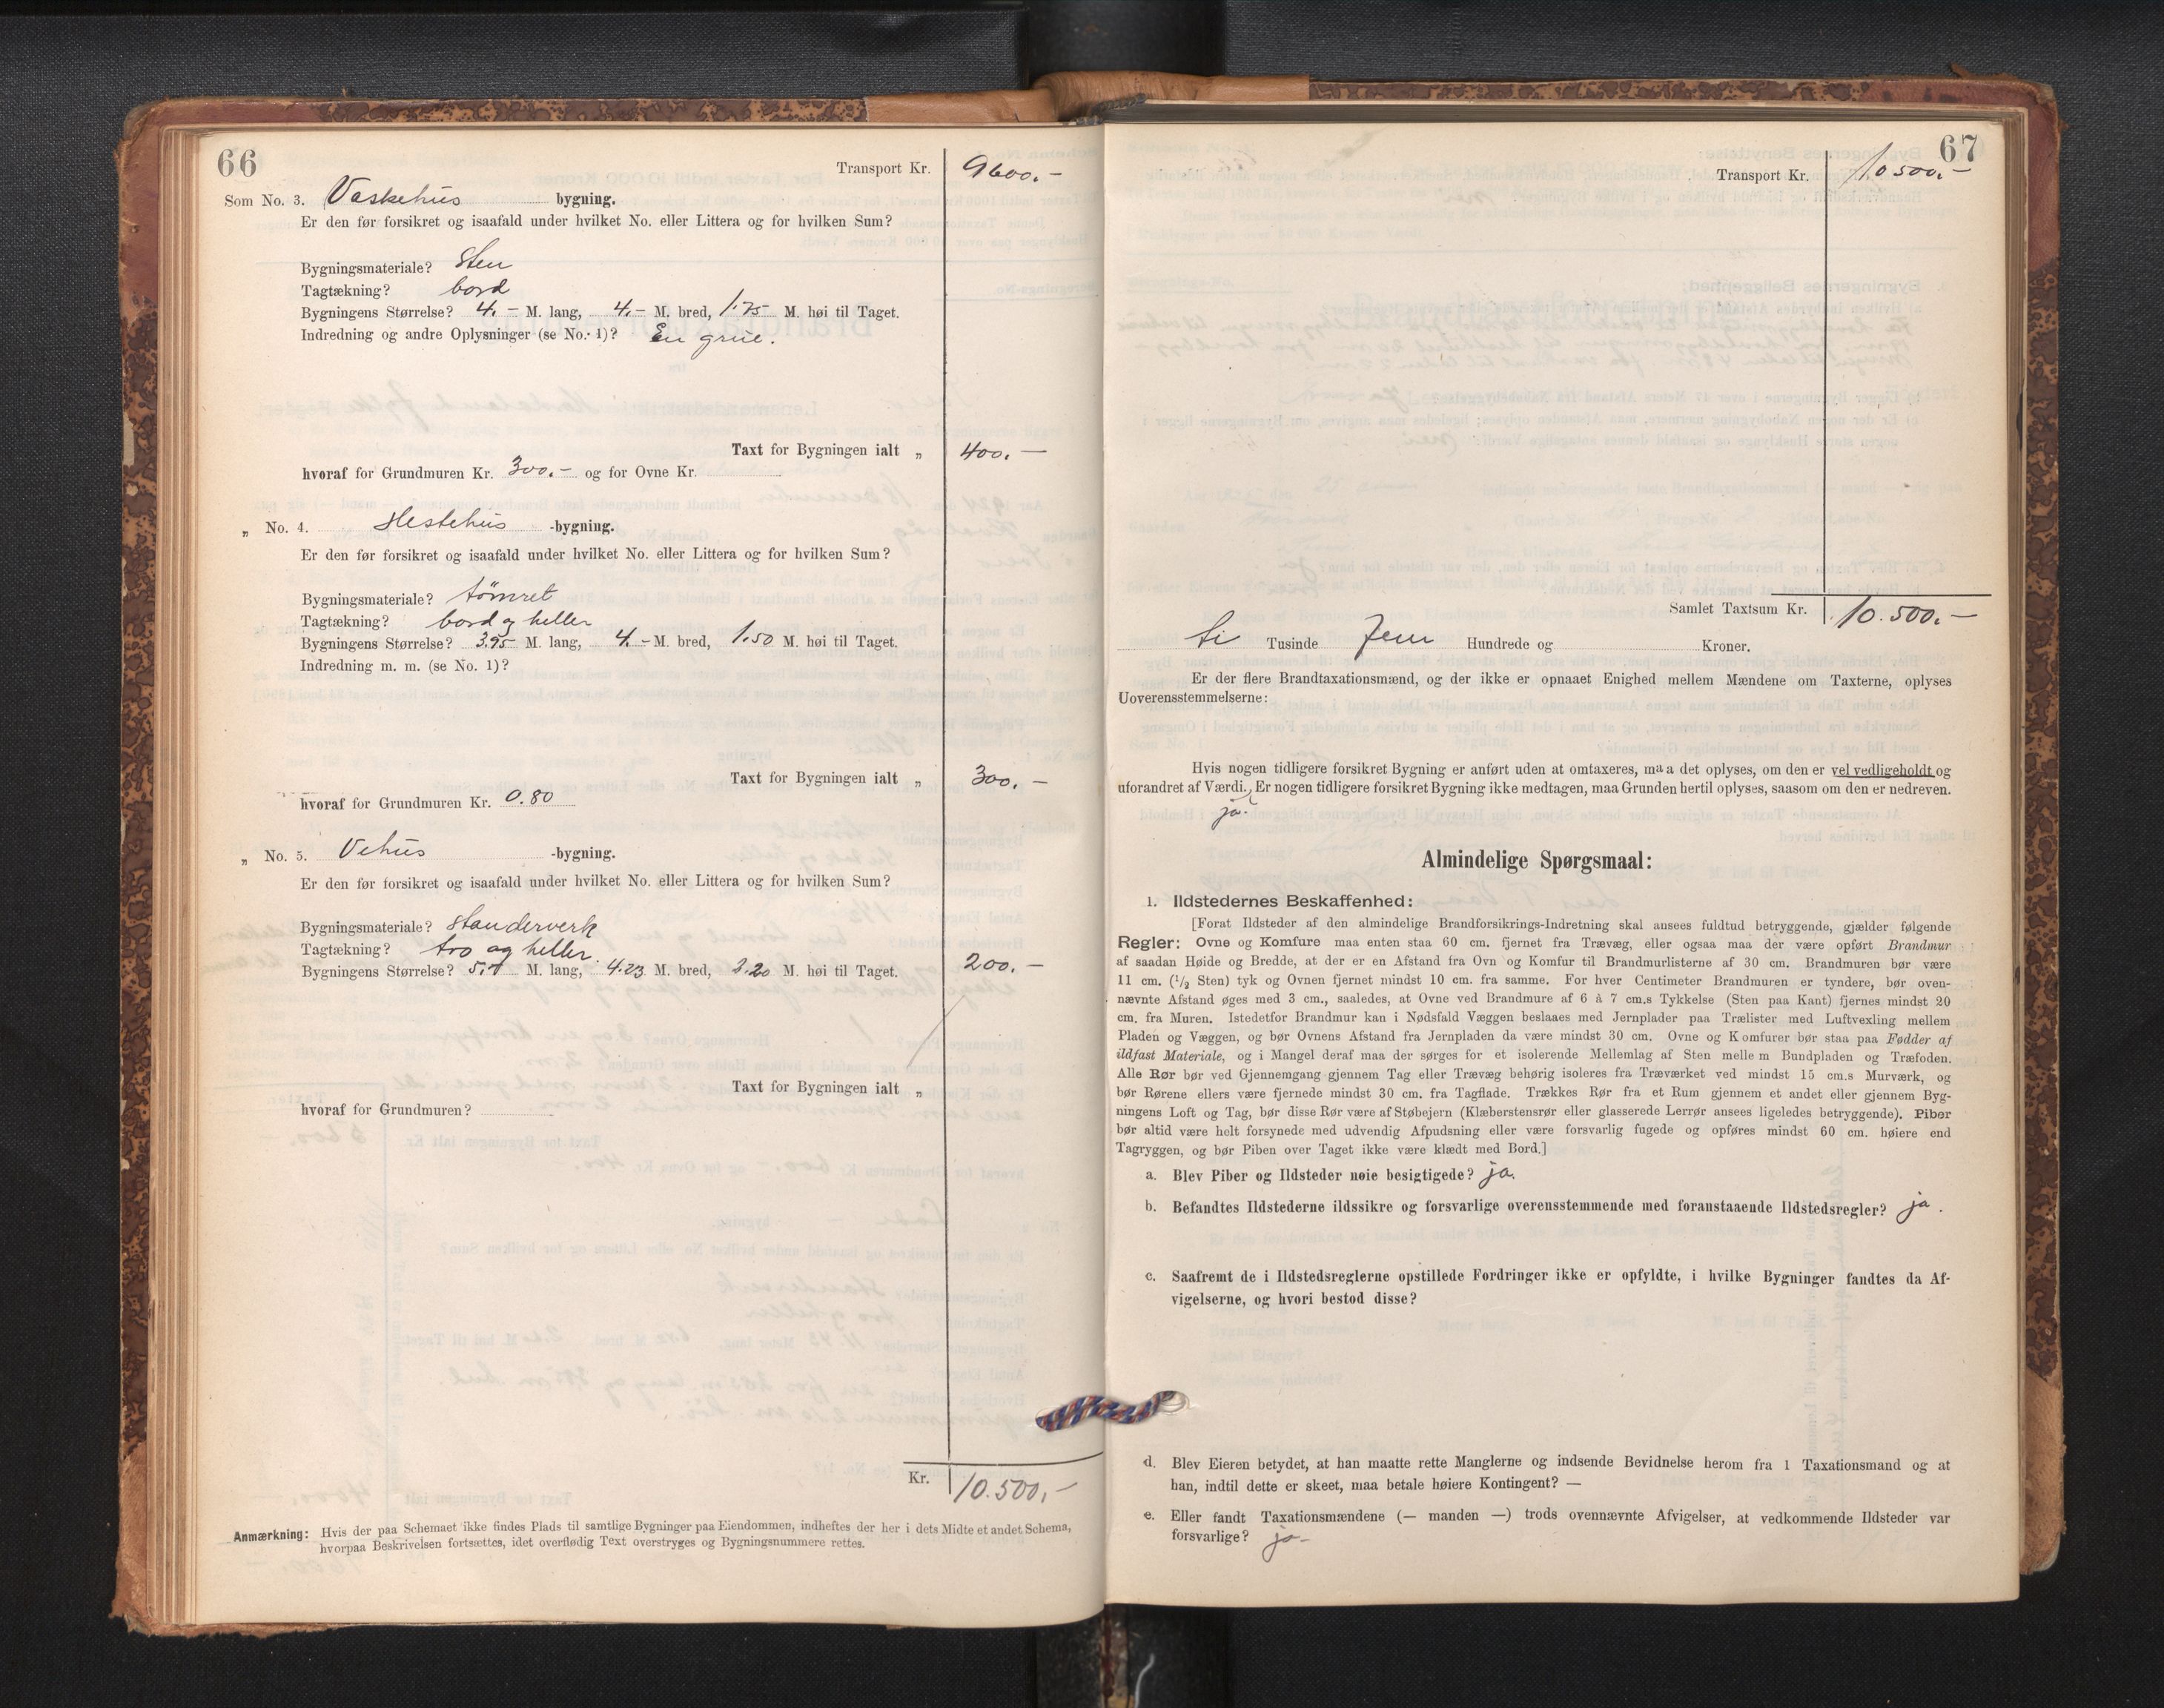 66
Transport Kr. 9600.-
Som No. 3. Vaskehus bygning.
Er den før forsikret og isaafald under hvilket No. eller Littera og for hvilken Sum?
Bygningsmateriale? Sten
Tagtækning? bord
Bygningens Størrelse? 4.- M. lang, 4.- M. bred, 1.75 M. høi til Taget.
Indredning og andre Oplysninger (se No. 1)? En grue.
Taxt for Bygningen ialt „ 400.-
hvoraf for Grundmuren Kr. 300.- og for Ovne Kr.
„ No. 4. Hestehus -bygning.
Er den før forsikret og isaafald under hvilket No. eller Littera og for hvilken Sum?
Bygningsmateriale? tømret
Tagtækning? bord og heller
Bygningens Størrelse? 3.95 M. lang, 4.- M. bred, 1.50 M. høi til Taget.
Indredning m. m. (se No. 1)?
Taxt for Bygningen ialt „ 300.-
hvoraf for Grundmuren Kr. 0.80
„ No. 5. Vehus -bygning.
Er den før forsikret og isaafald under hvilket No. eller Littera og for hvilken Sum?
Bygningsmateriale? Standerverk
Tagtækning? tro og heller.
Bygningens Størrelse? M. lang, 4.23 M. bred, 2.20 M. høi til Taget. 200.-
Taxt for Bygningen ialt „
hvoraf for Grundmuren?
Kr. 10.500.-
Anmærkning: Hvis der paa Schemaet ikke findes Plads til samtlige Bygninger paa Eiendommen, indheftes der her i dets Midte et andet Schema,
hvorpaa Beskrivelsen fortsættes, idet overflødig Text overstryges og Bygningsnummere rettes.
67
Transport Kr. 10500.-
Samlet Taxtsum Kr. 10.500.-
ti Tusinde fem Hundrede og Kroner.
Er der flere Brandtaxationsmænd, og der ikke er opnaaet Enighed mellem Mændene om Taxterne, oplyses
Uoverensstemmelserne:
Hvis nogen tidligere forsikret Bygning er anført uden at omtaxeres, maa det oplyses, om den er vel vedligeholdt og
uforandret af Værdi. Er nogen tidligere forsikret Bygning ikke medtagen, maa Grunden hertil oplyses, saasom om den er nedreven.
ja.
Almindelige Spørgsmaal:
1. Ildstedernes Beskaffenhed:
[Forat Ildsteder af den almindelige Brandforsikrings-Indretning skal ansees fuldtud betryggende, gjælder følgende
Regler: Ovne og Komfure maa enten staa 60 cm. fjernet fra Trævæg, eller ogsaa maa der være opført Brandmur
af saadan Høide og Bredde, at der er en Afstand fra Ovn og Komfur til Brandmurlisterne af 30 cm. Brandmuren bør være
11 cm. (1/2 Sten) tyk og Ovnen fjernet mindst 10 cm. fra samme. For hver Centimeter Brandmuren er tyndere, bør oven-
nævnte Afstand øges med 3 cm., saaledes, at Ovne ved Brandmure af 6 à 7 cm.s Tykkelse (Sten paa Kant) fjernes mindst 20
cm. fra Muren. Istedetfor Brandmur kan i Nødsfald Væggen beslaaes med Jernplader paa Trælister med Luftvexling mellem
Pladen og Væggen, og bør Ovnens Afstand fra Jernpladen da være mindst 30 cm. Ovne og Komfurer bør staa paa Fødder af
ildfast Materiale, og i Mangel deraf maa der sørges for et isolerende Mellemlag af Sten mellem Bundpladen og Træfoden.
Alle Rør bør ved Gjennemgang gjennem Tag eller Trævæg behørig isoleres fra Træværket ved mindst 15 cm.s Murværk, og
bør Rørene ellers være fjernede mindst 30 cm. fra Tagflade. Trækkes Rør fra et Rum gjennem et andet eller gjennem Byg-
ningens Loft og Tag, bør disse Rør være af Støbejern (Klæberstensrør eller glasserede Lerrør ansees ligeledes betryggende). Piber
bør altid være helt forsynede med udvendig Afpudsning eller være forsvarlig fugede og opføres mindst 60 cm. høiere end
Tagryggen, og bør Piben over Taget ikke være klædt med Bord.]
a. Blev Piber og Ildsteder nøie besigtigede? ja.
b. Befandtes Ildstederne ildssikre og forsvarlige overensstemmende med foranstaaende Ildstedsregler? ja.
c. Saafremt de i Ildstedsreglerne opstillede Fordringer ikke er opfyldte, i hvilke Bygninger fandtes da Af-
vigelserne, og hvori bestod disse?
d. Blev Eieren betydet, at han maatte rette Manglerne og indsende Bevidnelse herom fra 1 Taxationsmand og at
han, indtil dette er skeet, maa betale høiere Kontingent? —
e. Eller fandt Taxationsmændene (— manden —) trods ovennævnte Afvigelser, at vedkommende Ildsteder var
forsvarlige? ja-